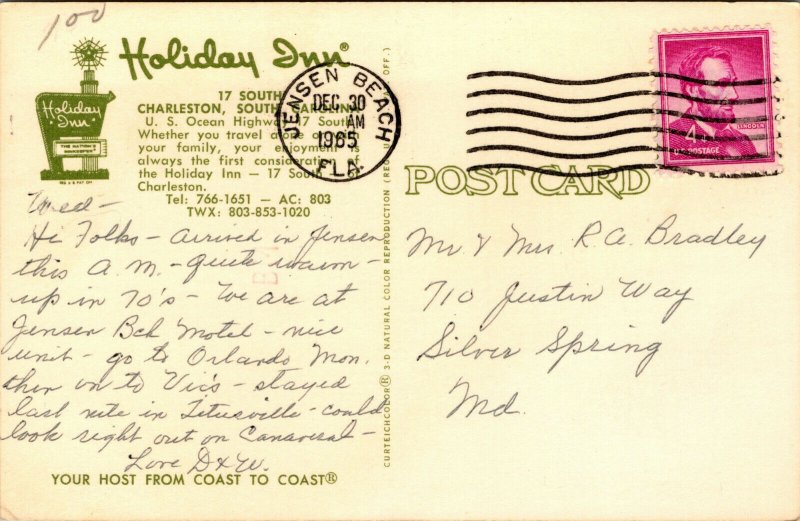 100
Holiday Inn®
Holiday
Inn
THE NATION'S
INNKEEPER
REG. U.S. PAT. OFF.
17 SOUTH
CHARLESTON, SOUTH CAROLINA
U. S. Ocean Highway 17 South
Whether you travel alone or with
your family, your enjoyment is
always the first consideration of
the Holiday Inn — 17 South
Charleston.
Tel: 766-1651 — AC: 803
TWX: 803-853-1020
JENSEN BEACH
DEC 30
AM
1965
FLA.
4
LINCOLN
U.S. POSTAGE
POST CARD
Wed-
Hi Folks - arrived in Jensen
this A.M. - quite warm -
up in 70's - We are at
Jensen Bch Motel - nice
unit - go to Orlando Mon.
then on to Vic's - stayed
last nite in Titusville - could
look right out on Canaveral -
Love D & W.
YOUR HOST FROM COAST TO COAST®
CURTEICHCOLOR® 3-D NATURAL COLOR REPRODUCTION (REG. U.S. OFF.)
Mr & Mrs R. A. Bradley
710 Justin Way
Silver Spring
Md.